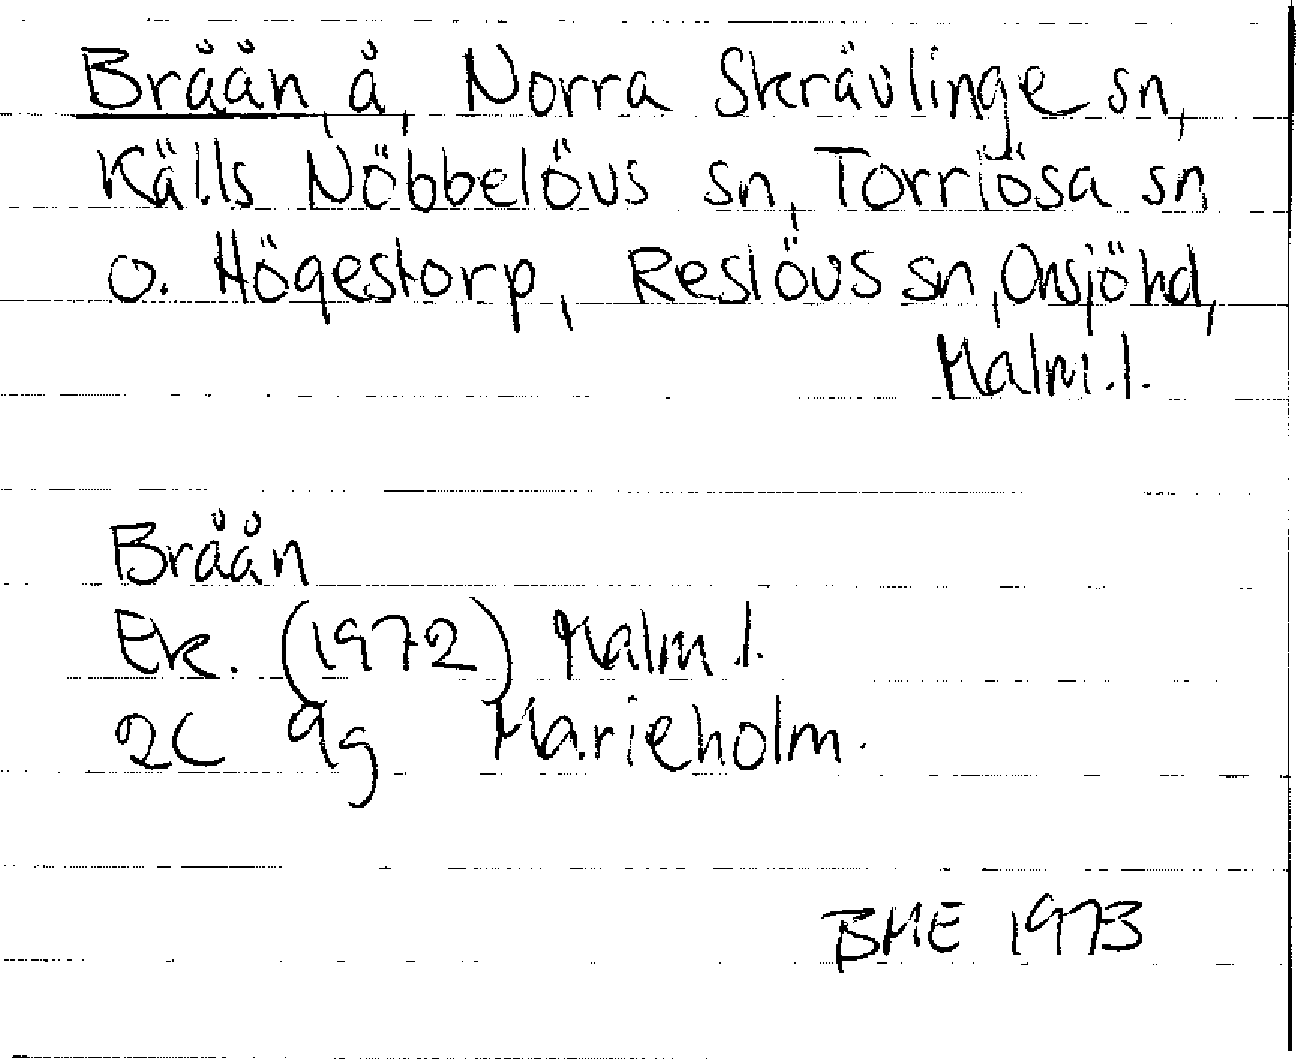 Bråån, å, Norra Skrävlinge sn,
Källs Nöbbelövs sn, Torrlösa sn
o. Högestorp, Reslövs sn, Onsjöhd,
Malm.l.
Bråån
Ek. (1972) Malm.l.
2C 9g Marieholm.
BME 1973